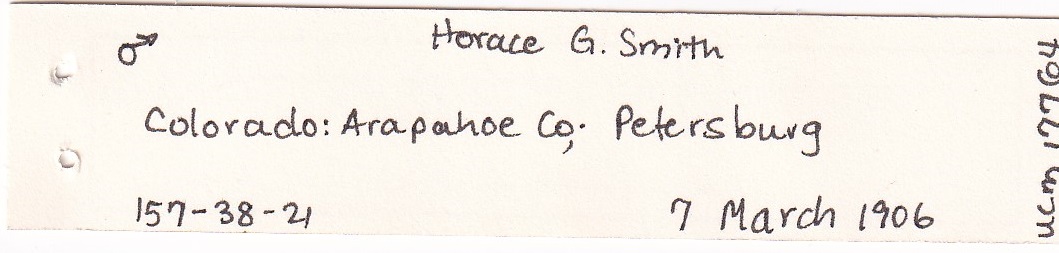 ♂ Horace G. Smith
Colorado: Arapahoe Co; Petersburg
157-38-21 7 March 1906
UCM 17764